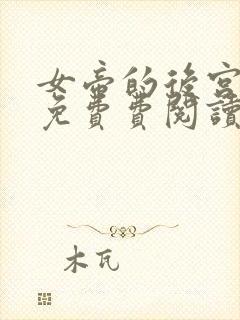 女帝的後宮
免費費閱讀
木瓦